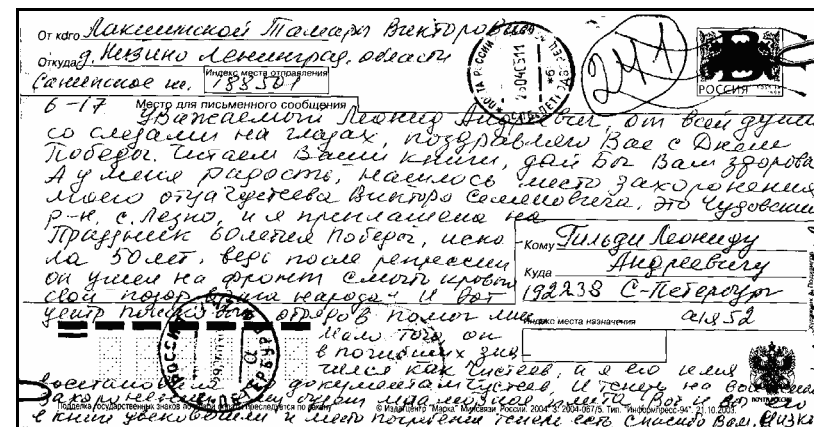 От кого Лакшинской Тамары Викторовны
Откуда д. Низино Ленинград. области
Санинское ш. Индекс места отправления 188501
6-17 Место для письменного сообщения
Уважаемый Леонид Андреевич, от всей души
со слезами на глазах, поздравляю Вас с Днем
Победы. Читаем Ваши книги, дай Бог Вам здоровья
А у меня радость, нашлось место захоронения
моего отца Густеева Виктора Семеновича. Это Чудовский
р-н, с. Лезно, и я приглашена на
Праздник 60летия Победы, иска
ла 50 лет, ведь после репрессии
он ушел на фронт смыть кровью
свой позор врага народа. И вот
центр поисковых отрядов помог мне
Мало того он
в погибших зна
чился как Чистеев, и я его имя
восстановила по документам Густеев. И теперь на
захоронении
в книге увековечили и место погребения теперь есть Спасибо Вам. Низко
241
РОССИЯ
ПОЧТА РОССИИ
250405 11
Кому Гильди Леониду
Куда Андреевичу
192238 С-Петербург
Индекс места назначения а/я 52
РОССИЯ
Подделка государственных знаков почтовой оплаты преследуется по закону
© Издатцентр "Марка" Минсвязи России. 2004. З. 2004-067/5. Тип. "Информпресс-94". 21.10.2003.